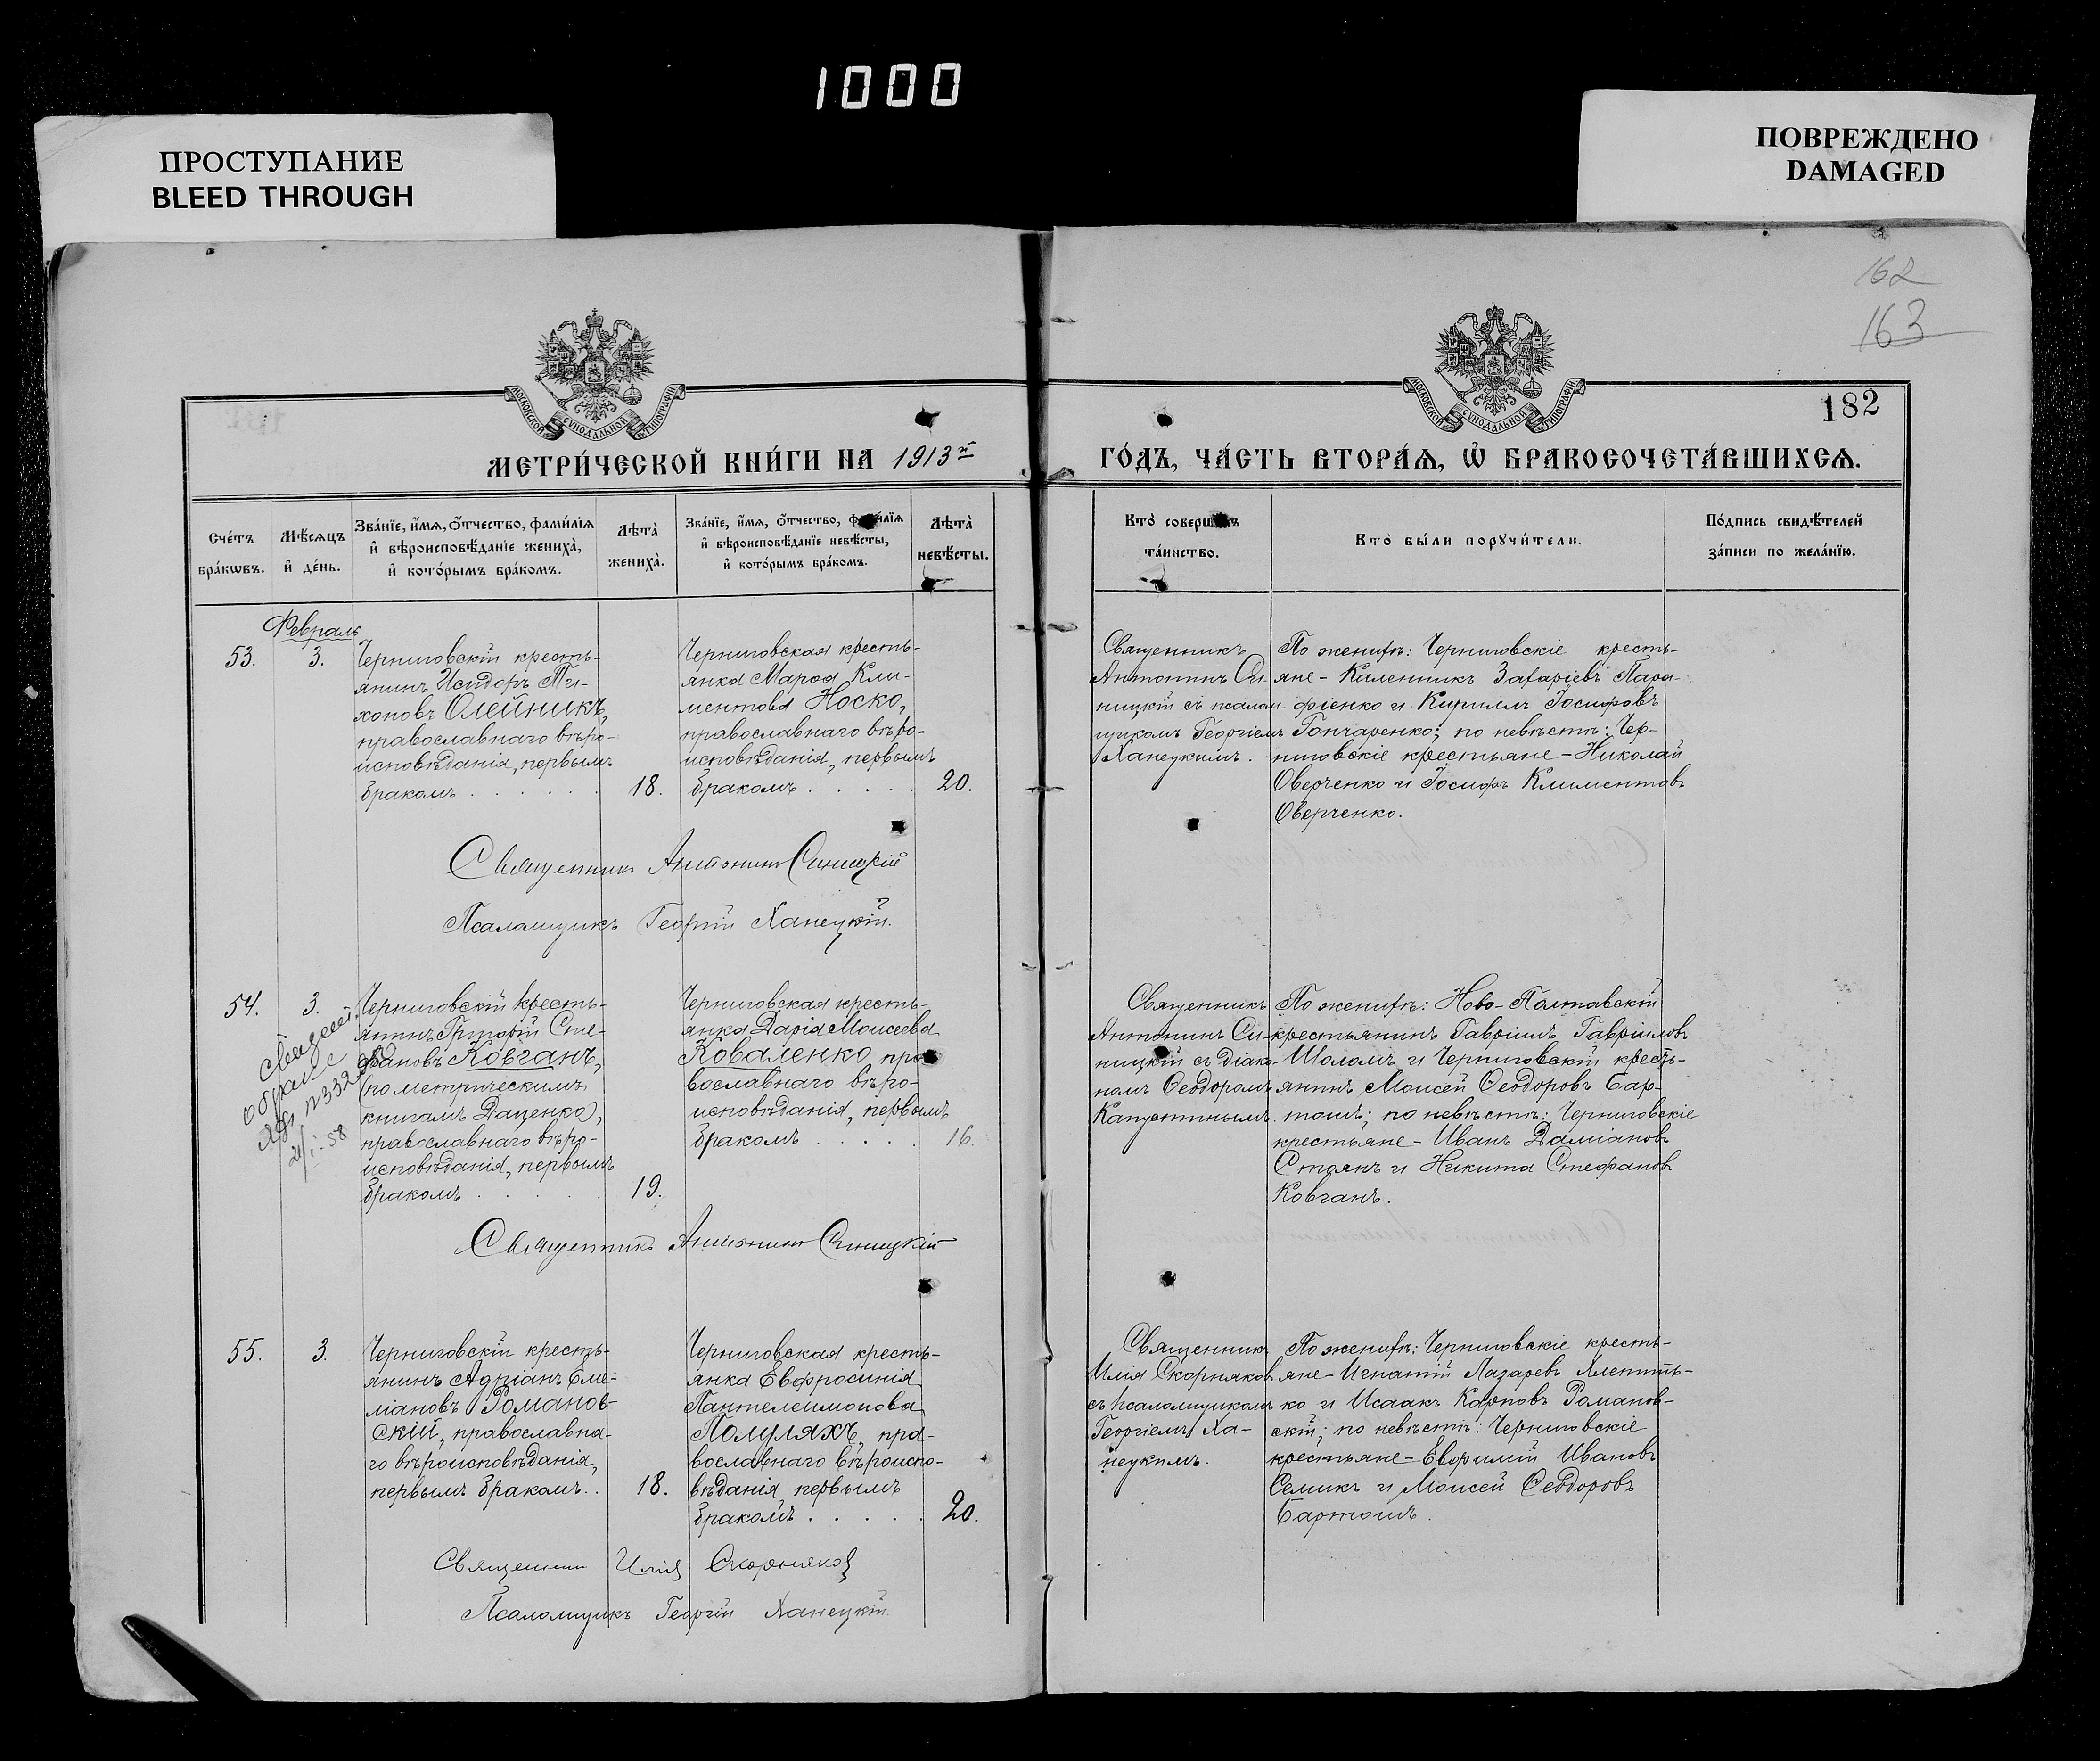 1000
ПРОСТУПАНИЕ
BLEED THROUGH
ПОВРЕЖДЕНО
DAMAGED
162
163
182
МОСКОВСКОЙ СѴНОДАЛЬНОЙ ТИПОГРАФІИ
МОСКОВСКОЙ СѴНОДАЛЬНОЙ ТИПОГРАФІИ
МЕТРИ́ЧЕСКОЙ КНИ́ГИ НА 1913й
ГО́ДЪ, ЧА́СТЬ ВТОРА́Ѧ, Ѡ҆ БРАКОСОЧЕТА́ВШИХСѦ.
Сче́тъ
бра́кѡвъ.
Мѣ́сѧцъ
и҆ де́нь.
Зва́нїе, и҆́мѧ, ѻ҆́тчество, фами́лїѧ
и҆ вѣроисповѣ́данїе жениха̀,
и҆ кото́рымъ бра́комъ.
Лѣта̀
жениха̀.
Зва́нїе, и҆́мѧ, ѻ҆́тчество, фами́лїѧ
и҆ вѣроисповѣ́данїе невѣ́сты,
и҆ кото́рымъ бра́комъ.
Лѣта̀
невѣ́сты.
Кто̀ соверша́лъ
та́инство.
Кто̀ бы́ли порꙋчи́тели.
По́дпись свидѣ́телей
за́писи по жела́нїю.
Февраль
53.
3.
Черниговскій кресть-
янинъ Исидоръ Ти-
хоновъ Олейникъ,
православнаго вѣро-
исповѣданія, первымъ
бракомъ . . . . . .
18.
Черниговская кресть-
янка Марѳа Кли-
ментова Носко,
православнаго вѣро-
исповѣданія, первымъ
бракомъ . . . . .
20.
Священникъ
Антонинъ Си-
ницкій съ псалом-
щикомъ Георгіемъ
Ханецкимъ.
По женихѣ: Черниговскіе кресть-
яне - Каленникъ Захаріевъ Пара-
фіенко и Кириллъ Іосифовъ
Гончаренко; по невѣстѣ: Чер-
ниговскіе крестьяне - Николай
Оверченко и Іосифъ Климентовъ
Оверченко.
Священникъ Антонинъ Синицкій
Псаломщикъ Георгій Ханецкій.
54.
3.
Черниговскій кресть-
янинъ Григорій Сте-
фановъ Ковганъ,
(по метрическимъ
книгамъ Даценко),
православнаго вѣро-
исповѣданія, первымъ
бракомъ . . . . .
19.
Черниговская кресть-
янка Дарія Моисеева
Коваленко, пра-
вославнаго вѣро-
исповѣданія, первымъ
бракомъ . . . . .
16.
Священникъ
Антонинъ Си-
ницкій съ діако-
номъ Ѳеодоромъ
Капустинымъ.
По женихѣ: Ново-Полтавскій
крестьянинъ Гавріилъ Гавріиловъ
Шаломъ и Черниговскій кресть-
янинъ Моисей Ѳеодоровъ Бар-
тошъ; по невѣстѣ: Черниговскіе
крестьяне - Иванъ Даміановъ
Стоянъ и Никита Стефановъ
Ковганъ.
о браке
Священникъ Антонинъ Синицкій
55.
3.
Черниговскій кресть-
янинъ Адріанъ Еме-
ліановъ Романов-
скій, православна-
го вѣроисповѣданія,
первымъ бракомъ..
18.
Черниговская кресть-
янка Евфросинія
Пантелеимонова
Полуляхъ, пра-
вославнаго вѣроиспо-
вѣданія, первымъ
бракомъ . . . . .
20.
Священникъ
Илія Скорняковъ
съ псаломщикомъ
Георгіемъ Ха-
нецкимъ.
По женихѣ: Черниговскіе кресть-
яне - Игнатій Лазаревъ
ко и Исаакъ Карповъ Романов-
скій; по невѣстѣ: Черниговскіе
крестьяне - Евфимій Ивановъ
Семикъ и Моисей Ѳеодоровъ
Бартошъ.
Священникъ Илія Скорняковъ
Псаломщикъ Георгій Ханецкій.